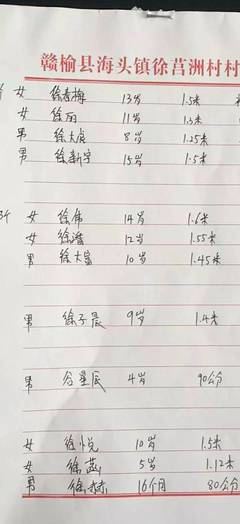 赣榆县海头镇徐莒洲村村
女 徐春梅 13岁 1.5米
女 徐丽 11岁 1.3米
男 徐大虎 8岁 1.25米
男 徐新宇 15岁 1.5米
女 徐伟 14岁 1.6米
女 徐潽 12岁 1.55米
男 徐大富 10岁 1.45米
男 徐子晨 9岁 1.4米
男 仝星辰 4岁 90公分
女 徐悦 10岁 1.5米
女 徐菡 5岁 1.12米
男 徐赫 16个月 80公分